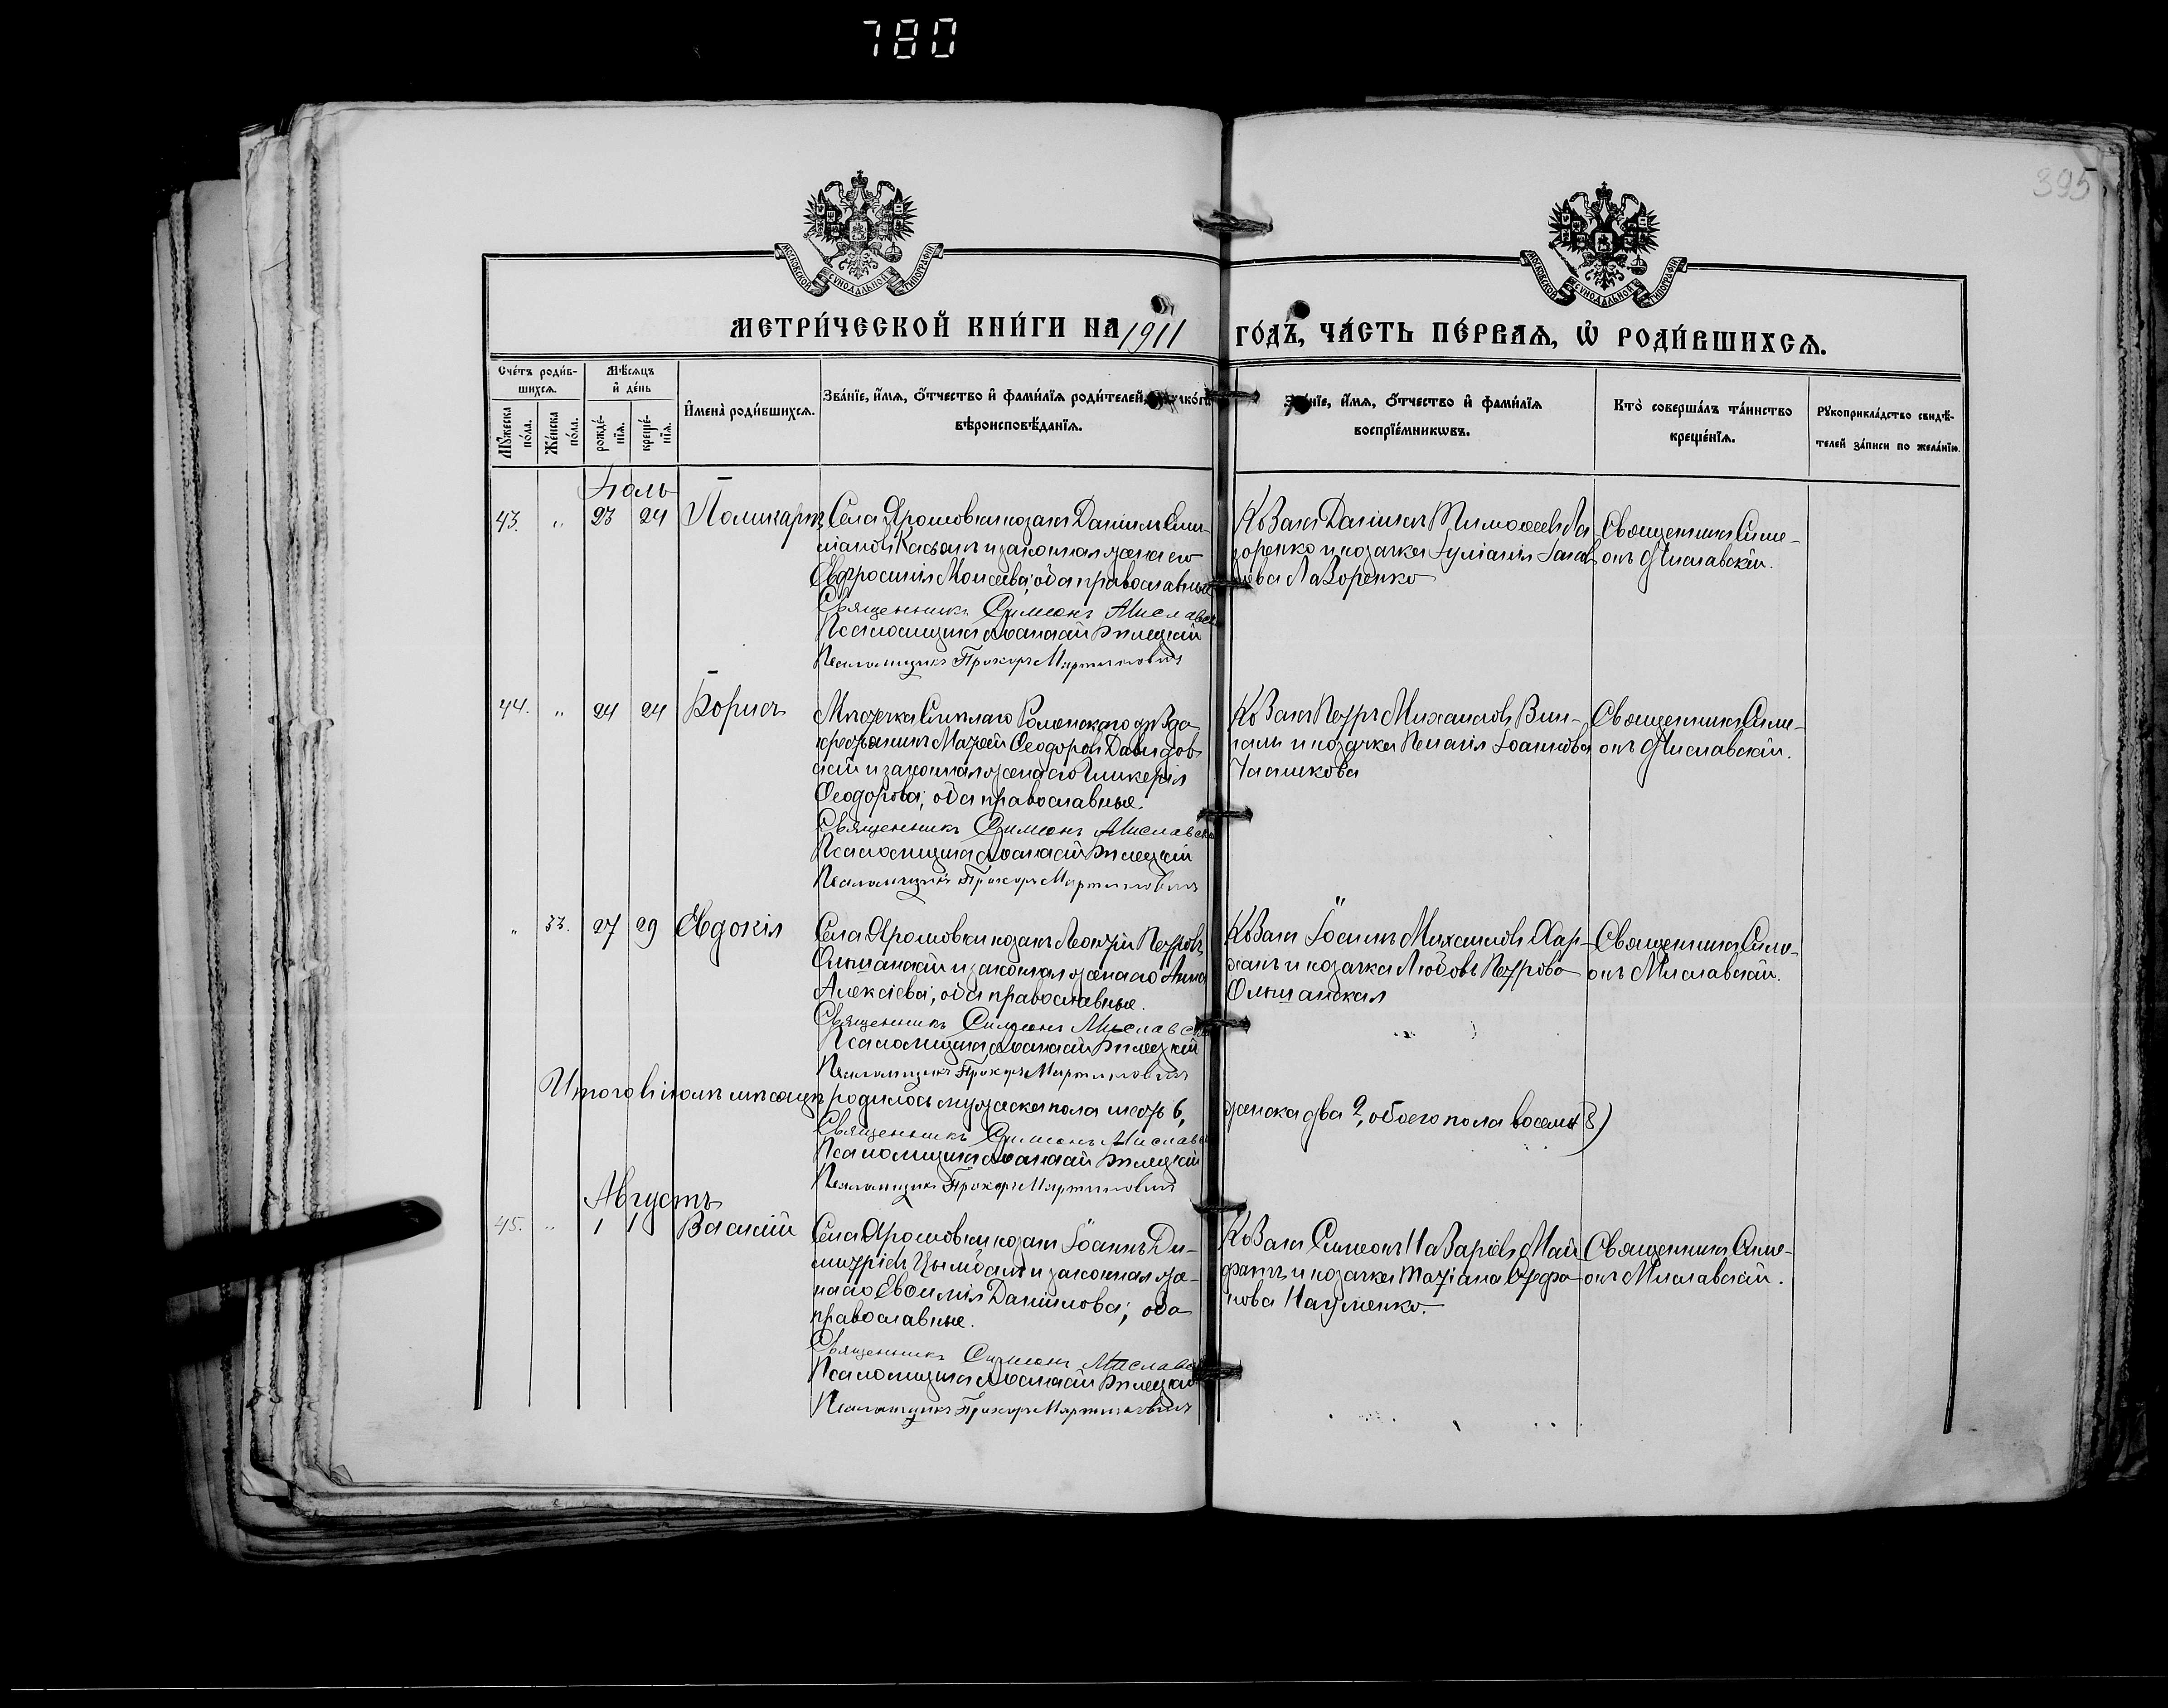 780
395
МОСКОВСКОЙ СѴНОДАЛЬНОЙ ТИПОГРАФІИ
МОСКОВСКОЙ СѴНОДАЛЬНОЙ ТИПОГРАФІИ
МЕТРИ́ЧЕСКОЙ КНИ́ГИ НА 1911 ГО́ДЪ, ЧА́СТЬ ПЕ́РВАѦ, Ѡ҆ РОДИ́ВШИХСѦ.
Сче́тъ роди́в-
шихсѧ.
Мꙋ́жеска по́ла.
Же́нска по́ла.
Мѣ́сѧцъ
и҆ де́нь
рожде́-
нїѧ.
креще́-
нїѧ.
И҆мена̀ роди́вшихсѧ.
Зва́нїе, и҆́мѧ, ѻ҆́тчество и҆ фами́лїѧ роди́телей,
вѣроисповѣ́данїѧ.
Зва́нїе, и҆́мѧ, ѻ҆́тчество и҆ фами́лїѧ
воспрїе́мникѡвъ.
Кто̀ соверша́лъ та́инство
креще́нїѧ.
Рꙋкоприкла́дство свидѣ́-
телей за́писи по жела́нїю.
Іюль
43. " 23 24 Поликарпъ
Села Ярошовки козакъ Даніилъ Еми-
ліановъ Касьянъ и законная жена его
Евфросинія Моисеева; оба православные
Священникъ Симеонъ Миславск
Псаломщикъ Аѳанасій Билецкій
Псаломщикъ Прохоръ Мартиновичъ
Козакъ Даніилъ Тимоѳеевъ Ла
зоренко и козачка Іуліанія
ева Лазоренко
Священникъ Симе-
онъ Миславскій.
44. " 24 24 Борисъ
Мѣстечка Смѣлаго Роменскаго уѣзда
крестьянинъ Матѳей Ѳеодоровъ Давидов-
скій и законная жена его Гликерія
Ѳеодорова; оба православные.
Священникъ Симеонъ Миславск
Псаломщикъ Аѳанасій Билецкій
Псаломщикъ Прохоръ Мартиновичъ
Козакъ Петръ Михаиловъ
и козачка Пелагія Іоаннова
Священникъ Симе-
онъ Миславскій.
" 33. 27 29 Евдокія
Села Ярошовки козакъ Леонтій Петровъ
Ольшанскій и законная жена его Анна
Алексіева; оба православные.
Священникъ Симеонъ Миславск
Псаломщикъ Аѳанасій Билецкій
Псаломщикъ Прохоръ Мартиновичъ
Козакъ Іоаннъ Михаиловъ Хар-
ханъ и козачка Любовь Петрова
Ольшанская
Священникъ Симе-
онъ Миславскій.
Итого в іюлѣ мѣсяцѣ родилось мужеска пола шесть 6, женска два 2, обоего пола восемь 8)
Священникъ Симеонъ Миславск
Псаломщикъ Аѳанасій Билецкій
Псаломщикъ Прохоръ Мартиновичъ
Августъ
45. " 1 1 Василій
Села Ярошовки козакъ Іоаннъ Ди-
митріевъ Цымбалъ и законная же-
на его Евѳимія Даніилова; оба
православные.
Священникъ Симеонъ Миславск
Псаломщикъ Аѳанасій Билецкій
Псаломщикъ Прохоръ Мартиновичъ
Козакъ Симеонъ Назаріевъ Май
и козачка Татіана Стефа-
нова Науменко.
Священникъ Симе-
онъ Миславскій.